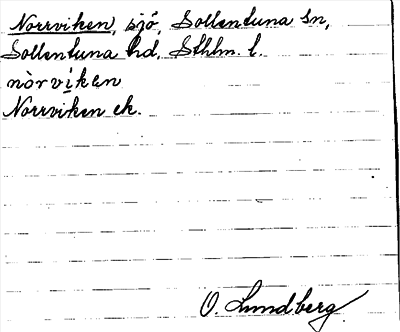 Norrviken, sjö, Sollentuna sn,
Sollentuna hd, Sthlm. l.
nòrvíken
Norrviken ek.
O. Lundberg